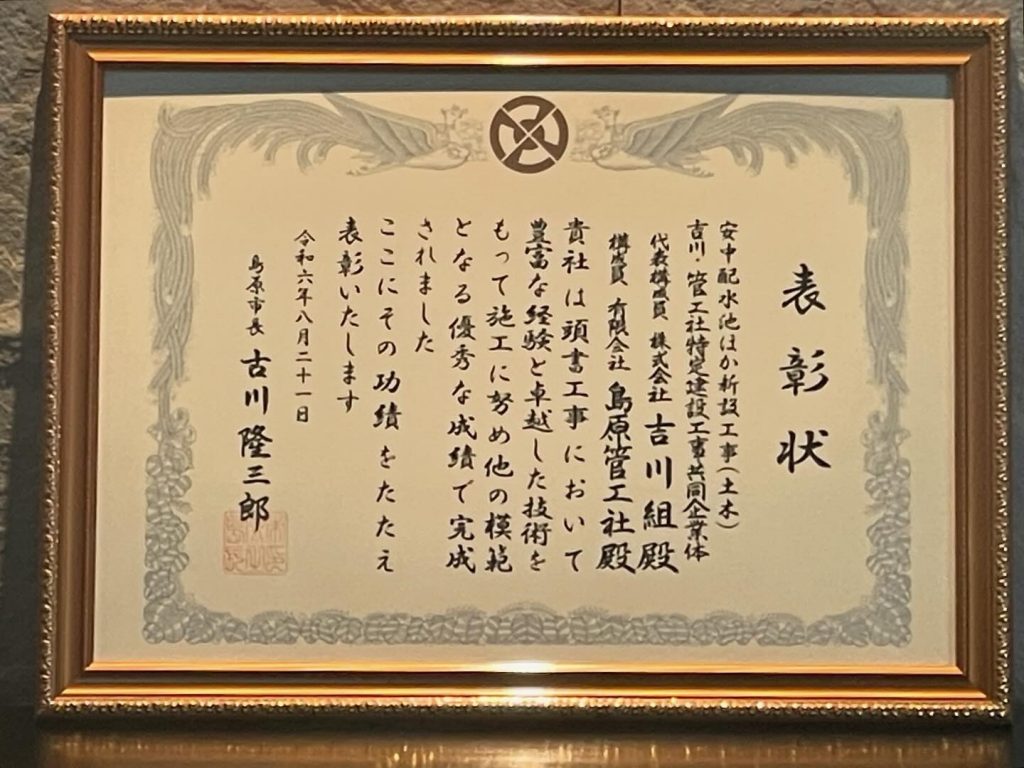 表彰状
安中配水池ほか新設工事（土木）
吉川・管工社特定建設工事共同企業体
代表構成員 株式会社 吉川組殿
構成員 有限会社 島原管工社殿
貴社は頭書工事において
豊富な経験と卓越した技術を
もって施工に努め他の模範
となる優秀な成績で完成
されました
ここにその功績をたたえ
表彰いたします
令和六年八月二十一日
島原市長 古川隆三郎